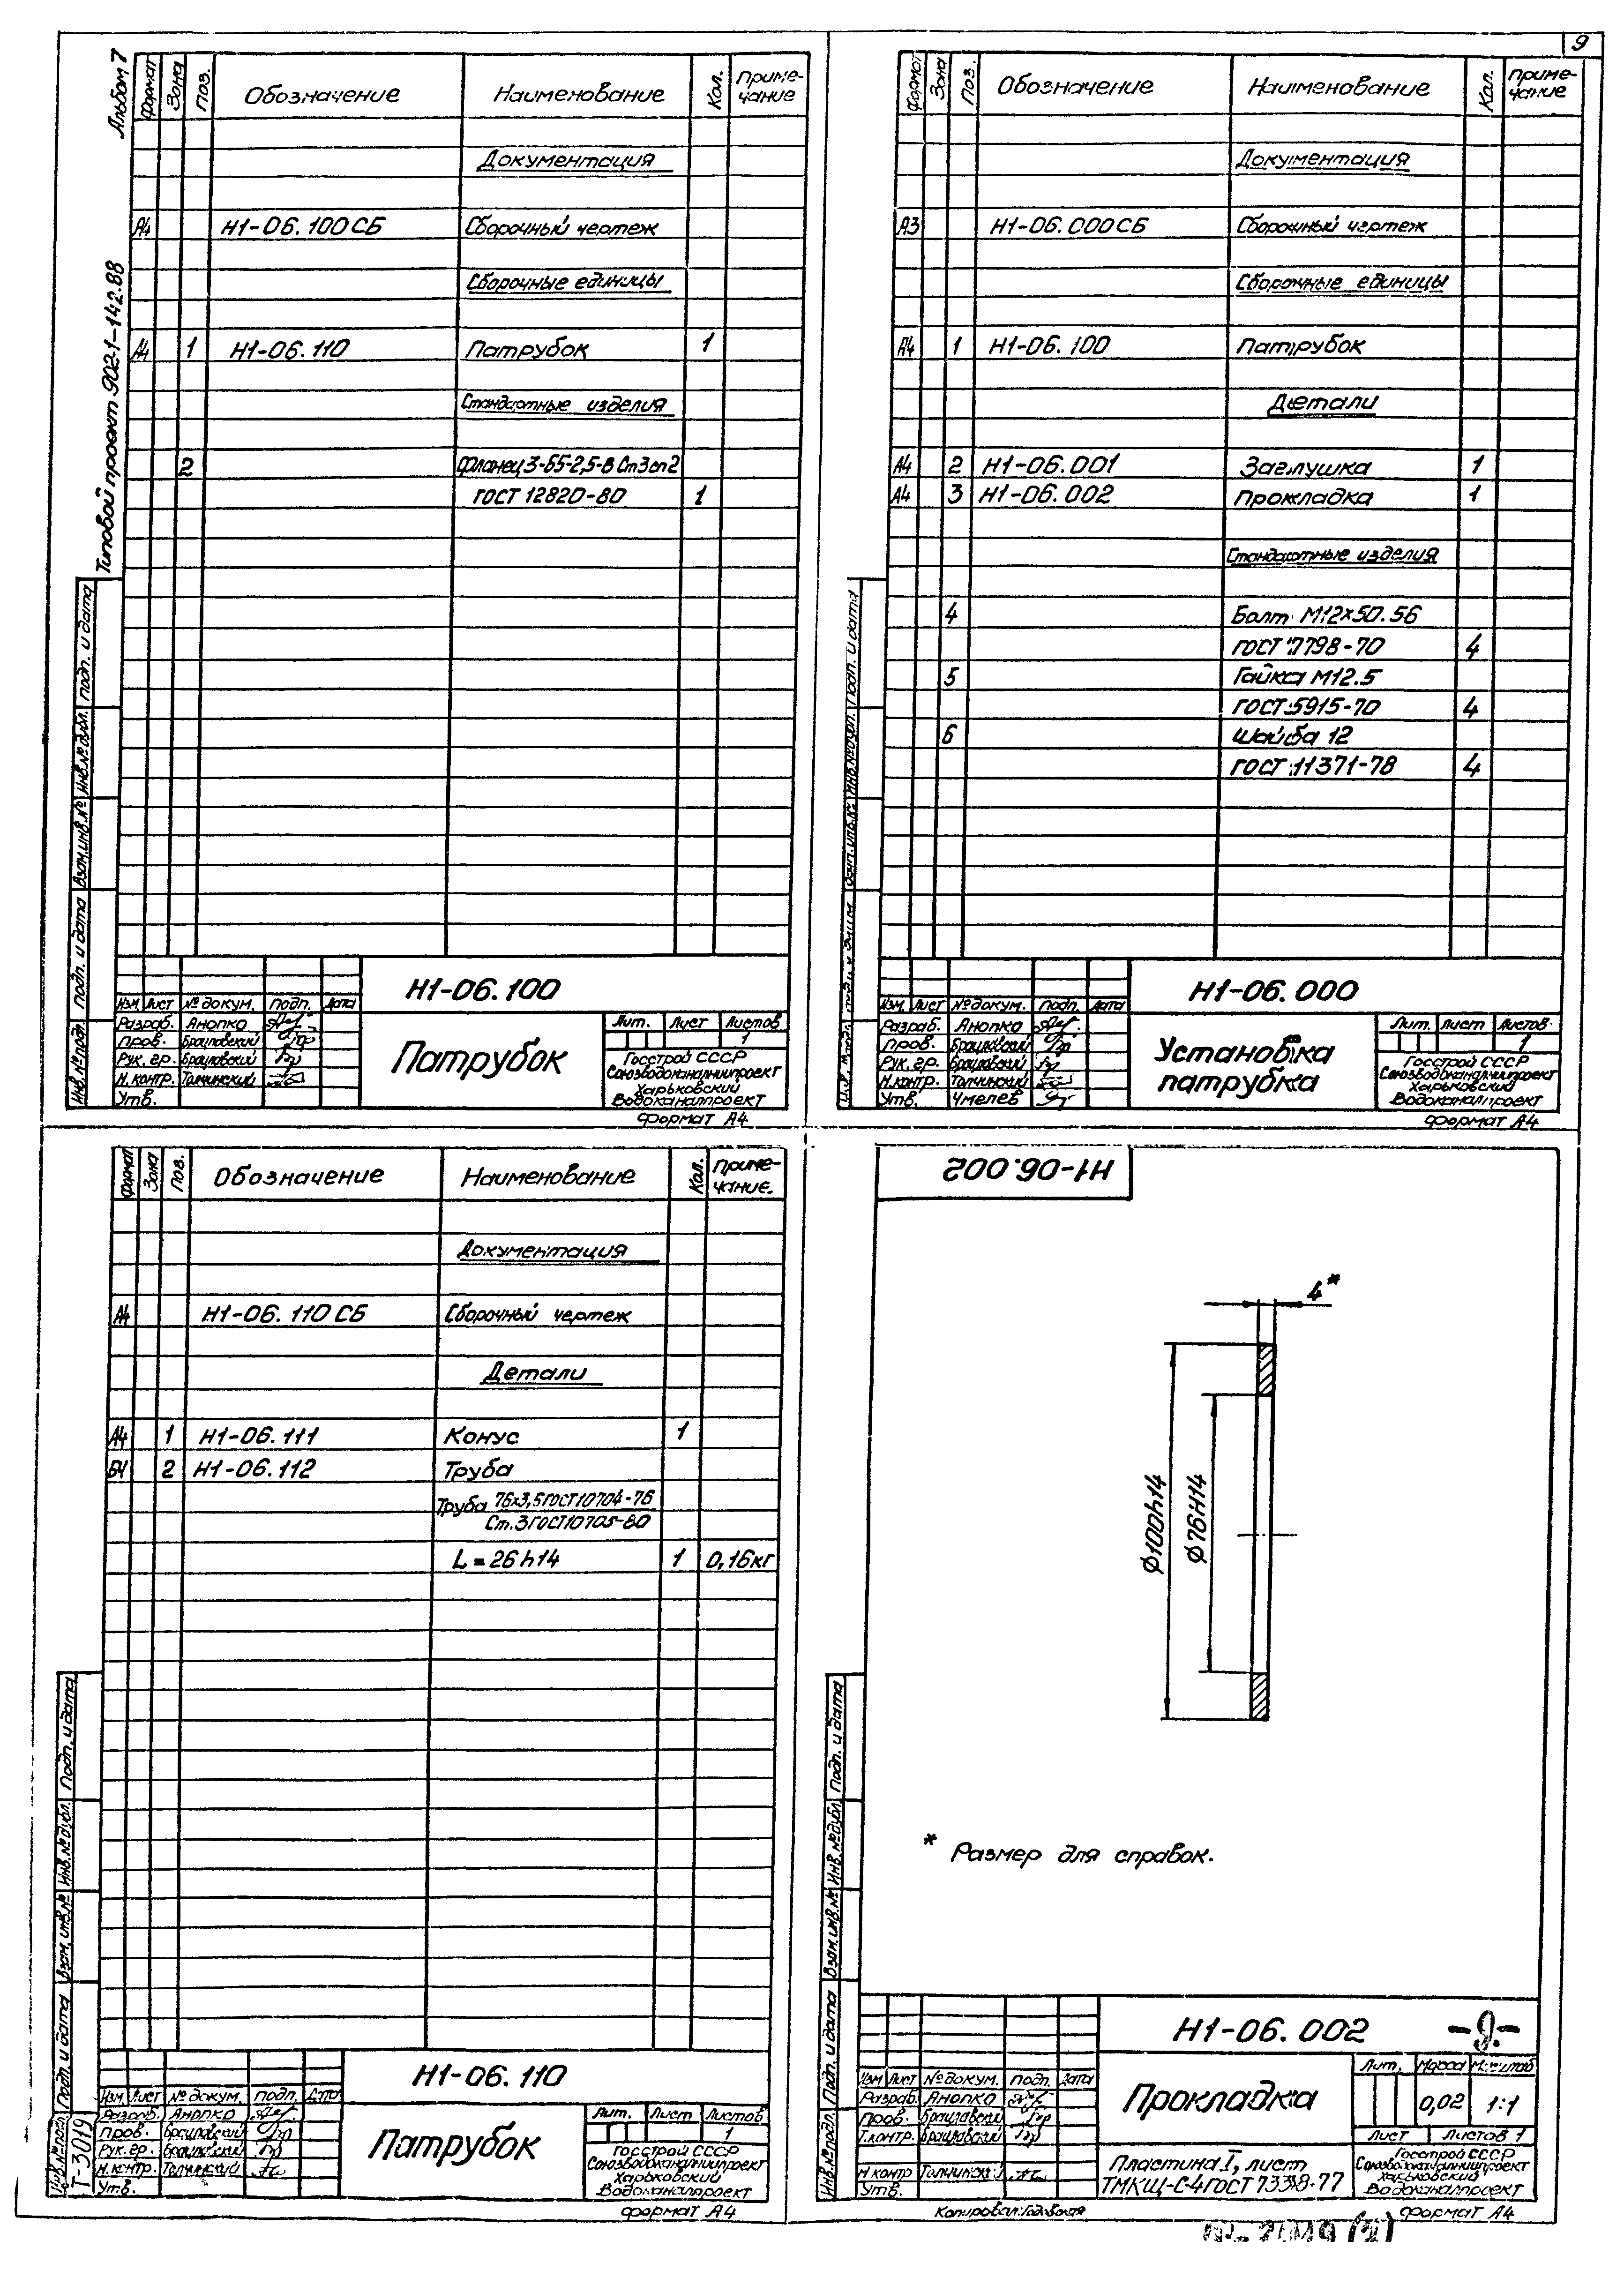 9
Альбом 7
Типовой проект 902-1-142.88
Формат Зона Поз. Обозначение Наименование Кол. Приме-
чание
Документация
А4 Н1-06.100 СБ Сборочный чертеж
Сборочные единицы
А4 1 Н1-06.110 Патрубок 1
Стандартные изделия
2 Фланец 3-65-2,5-В Ст3сп2
ГОСТ 12820-80 1
Подп. и дата
Инв.№ дубл.
Взам.инв.№
Подп. и дата
Инв.№ подл.
Н1-06.100
Изм. Лист № докум. Подп. Дата
Разраб. Анопко
Пров. Браиловский
Рук. гр. Браиловский
Н.контр. Толчинский
Утв.
Патрубок
Лит. Лист Листов
1
Госстрой СССР
Союзводоканалниипроект
Харьковский
Водоканалпроект
Формат А4
Формат Зона Поз. Обозначение Наименование Кол. Приме-
чание
Документация
А3 Н1-06.000 СБ Сборочный чертеж
Сборочные единицы
А4 1 Н1-06.100 Патрубок
Детали
А4 2 Н1-06.001 Заглушка 1
А4 3 Н1-06.002 Прокладка 1
Стандартные изделия
4 Болт М12×50.56
ГОСТ 7798-70 4
5 Гайка М12.5
ГОСТ 5915-70 4
6 Шайба 12
ГОСТ 11371-78 4
Подп. и дата
Инв.№ дубл.
Н1-06.000
Изм. Лист № докум. Подп. Дата
Разраб. Анопко
Пров. Браиловский
Рук. гр. Браиловский
Н.контр. Толчинский
Утв. Чмелев
Установка
патрубка
Лит. Лист Листов
1
Госстрой СССР
Союзводоканалниипроект
Харьковский
Водоканалпроект
Формат А4
Формат Зона Поз. Обозначение Наименование Кол. Приме-
чание.
Документация
А4 Н1-06.110 СБ Сборочный чертеж
Детали
А4 1 Н1-06.111 Конус 1
БЧ 2 Н1-06.112 Труба
Труба 76×3,5 ГОСТ 10704-76
Ст.3 ГОСТ 10705-80
L = 26 h14 1 0,16кг
Подп. и дата
Инв.№ дубл.
Взам.инв.№
Подп. и дата
Инв.№ подл.
Т-3019
Н1-06.110
Изм. Лист № докум. Подп. Дата
Разраб. Анопко
Пров. Браиловский
Рук. гр. Браиловский
Н.контр. Толчинский
Утв.
Патрубок
Лит. Лист Листов
1
Госстрой СССР
Союзводоканалниипроект
Харьковский
Водоканалпроект
Формат А4
Н1-06.002
4*
Ø100h14
Ø76H14
* Размер для справок.
Подп. и дата
Инв.№ дубл.
Взам.инв.№
Подп. и дата
Инв.№ подл.
Н1-06.002 -9-
Изм Лист № докум. Подп. Дата
Разраб. Анопко
Пров. Браиловский
Т.контр. Браиловский
Н контр Толчинский
Утв.
Прокладка
Лит. Масса Масштаб
0,02 1:1
Лист Листов 1
Пластина I, лист
ТМКЩ-С-4 ГОСТ 7338-77
Госстрой СССР
Союзводоканалниипроект
Харьковский
Водоканалпроект
Копировал:
Формат А4